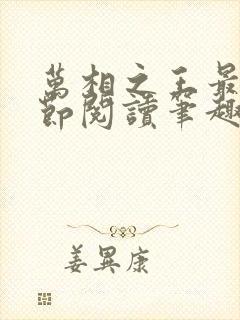 萬相之王最
節閱讀筆趣
姜異康